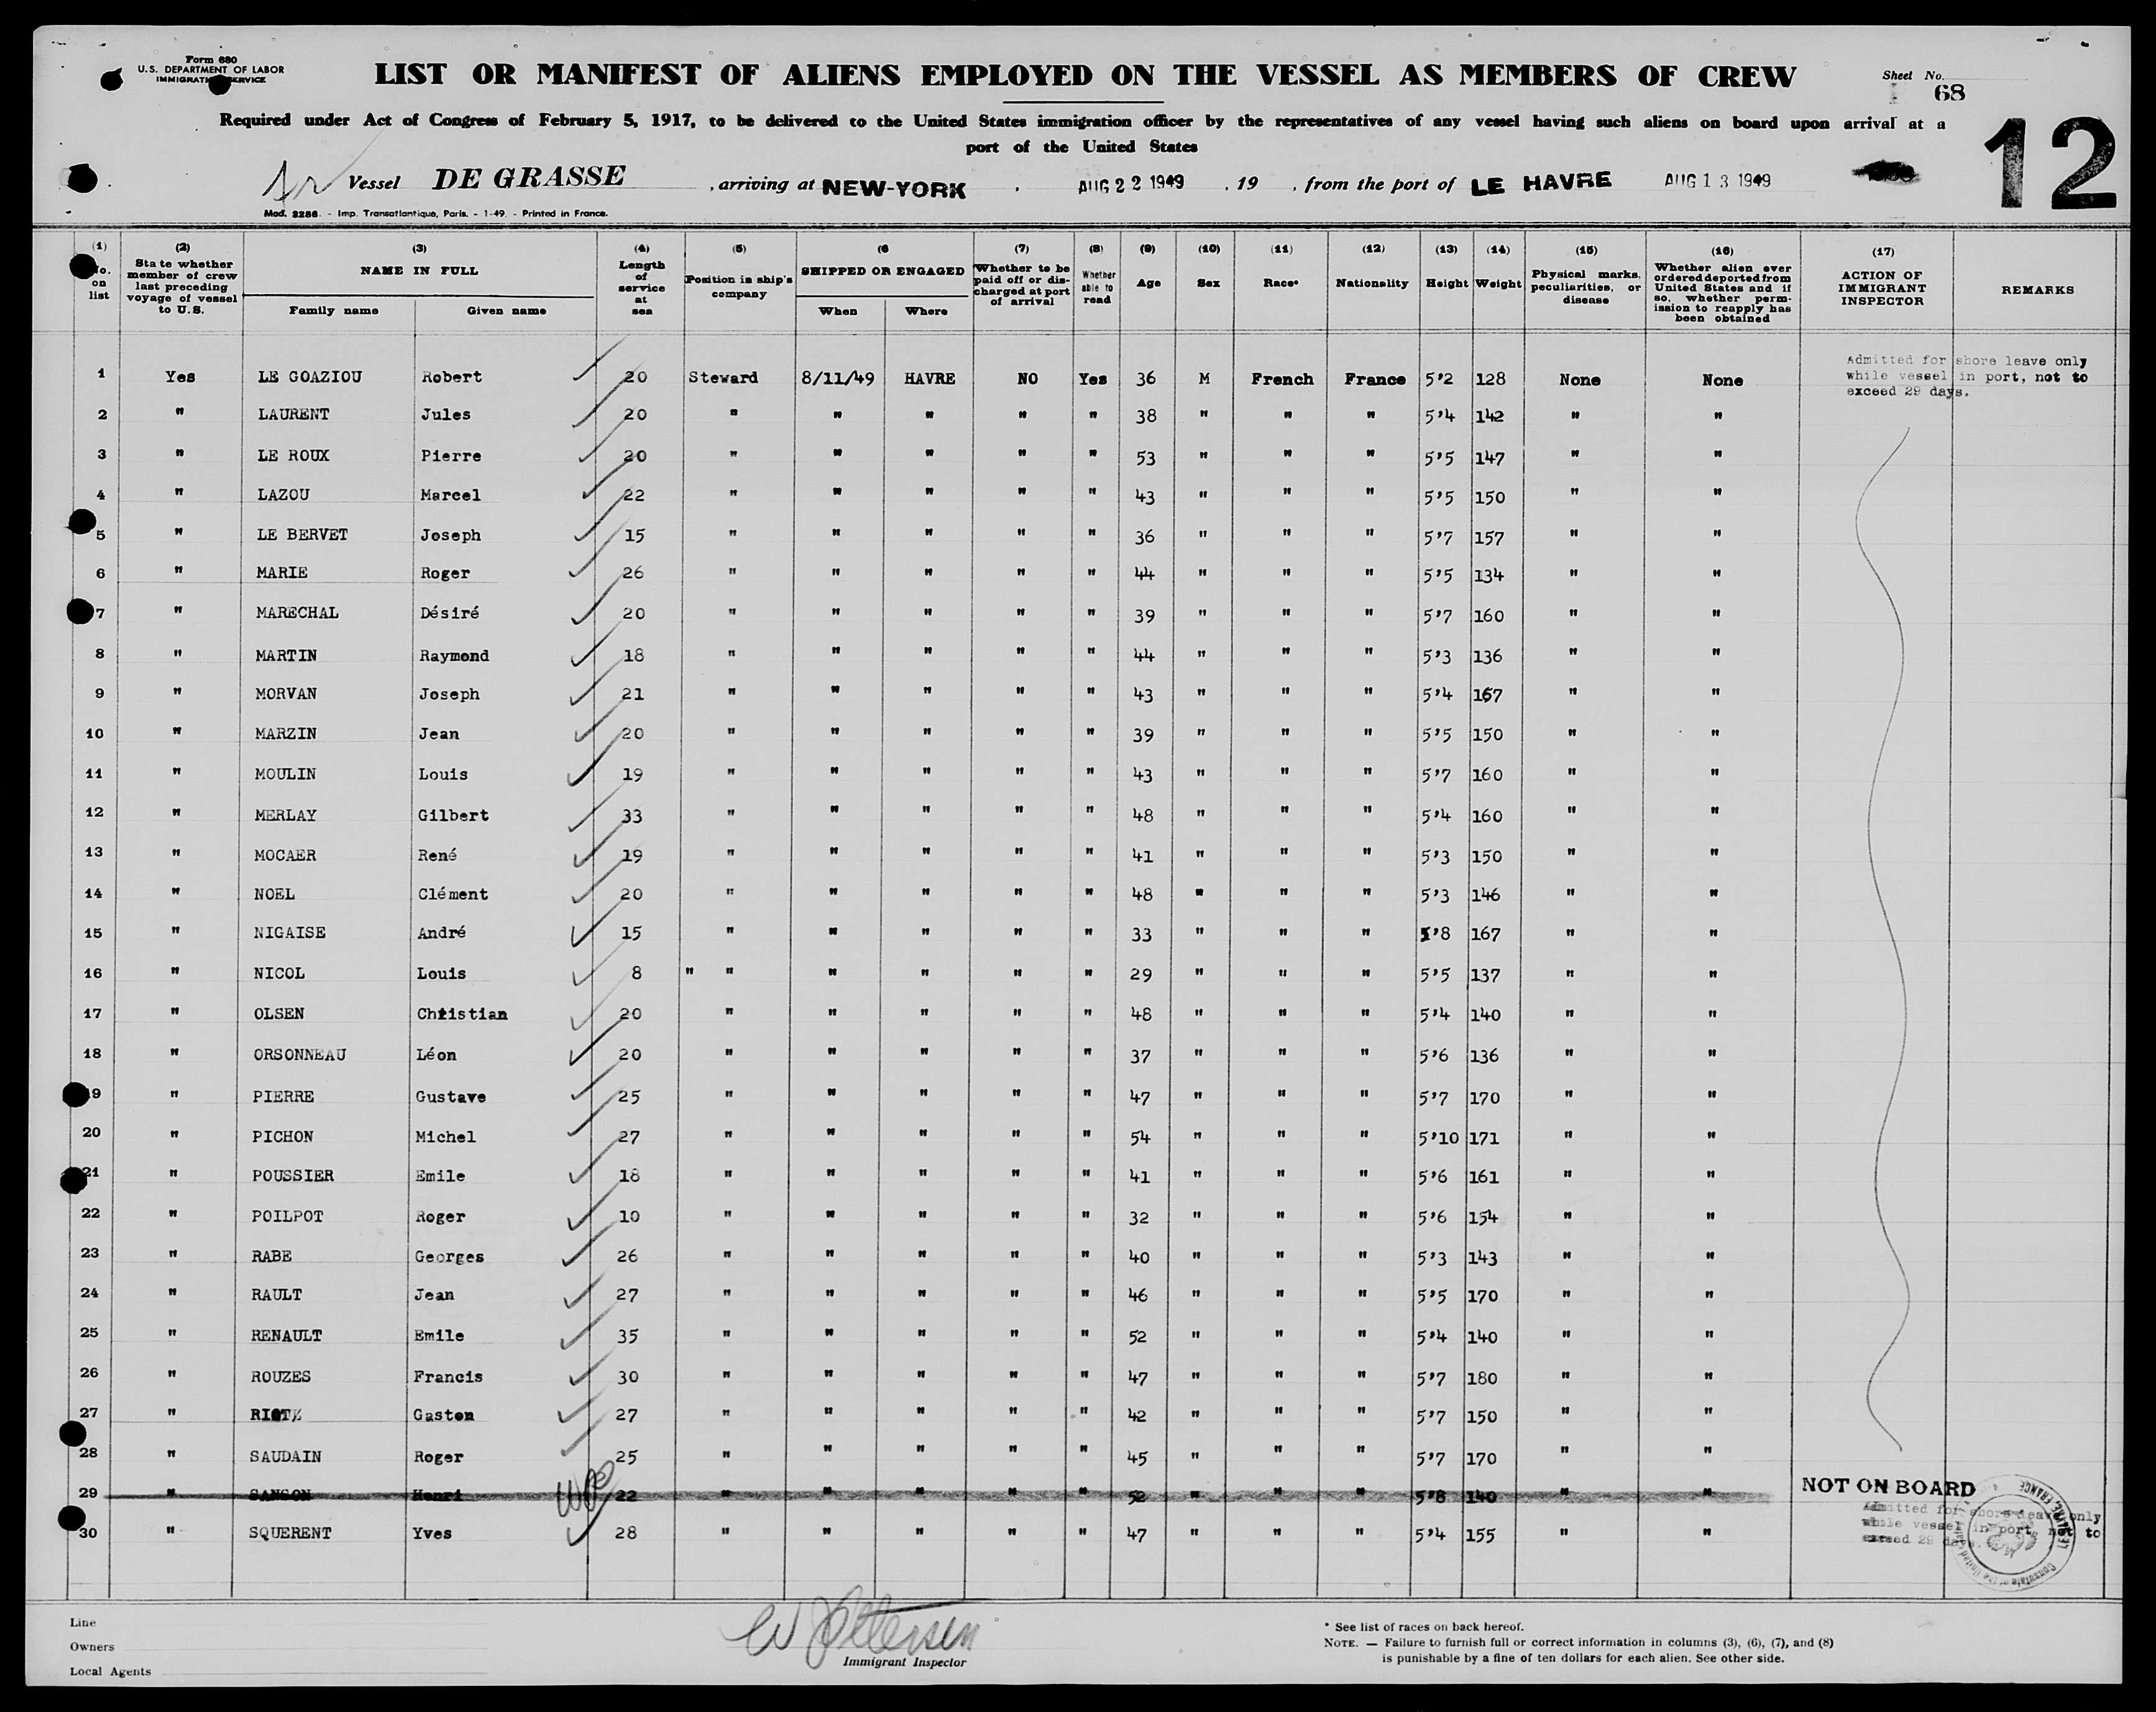 Form 680
U.S. DEPARTMENT OF LABOR
IMMIGRATION SERVICE
LIST OR MANIFEST OF ALIENS EMPLOYED ON THE VESSEL AS MEMBERS OF CREW
Sheet No.
68
12
Required under Act of Congress of February 5, 1917, to be delivered to the United States immigration officer by the representatives of any vessel having such aliens on board upon arrival at a
port of the United States
Vessel DE GRASSE , arriving at NEW-YORK . AUG 22 1949 , 19 , from the port of LE HAVRE AUG 13 1949
Mod. 2286. - Imp. Transatlantique, Paris. - 1-49. - Printed in France.
(1) No. on list
(2) State whether member of crew last preceding voyage of vessel to U.S.
(3) NAME IN FULL Family name Given name
(4) Length of service at sea
(5) Position in ship's company
(6 SHIPPED OR ENGAGED When Where
(7) Whether to be paid off or discharged at port of arrival
(8) Whether able to read
(9) Age
(10) Sex
(11) Race*
(12) Nationality
(13) Height
(14) Weight
(15) Physical marks, peculiarities, or disease
(16) Whether alien ever ordered deported from United States and if so, whether permission to reapply has been obtained
(17) ACTION OF IMMIGRANT INSPECTOR
REMARKS
1 Yes LE GOAZIOU Robert 20 Steward 8/11/49 HAVRE NO Yes 36 M French France 5'2 128 None None Admitted for shore leave only while vessel in port, not to exceed 29 days.
2 " LAURENT Jules 20 " " " " " 38 " " " 5'4 142 " "
3 " LE ROUX Pierre 20 " " " " " 53 " " " 5'5 147 " "
4 " LAZOU Marcel 22 " " " " " 43 " " " 5'5 150 " "
5 " LE BERVET Joseph 15 " " " " " 36 " " " 5'7 157 " "
6 " MARIE Roger 26 " " " " " 44 " " " 5'5 134 " "
7 " MARECHAL Désiré 20 " " " " " 39 " " " 5'7 160 " "
8 " MARTIN Raymond 18 " " " " " 44 " " " 5'3 136 " "
9 " MORVAN Joseph 21 " " " " " 43 " " " 5'4 167 " "
10 " MARZIN Jean 20 " " " " " 39 " " " 5'5 150 " "
11 " MOULIN Louis 19 " " " " " 43 " " " 5'7 160 " "
12 " MERLAY Gilbert 33 " " " " " 48 " " " 5'4 160 " "
13 " MOCAER René 19 " " " " " 41 " " " 5'3 150 " "
14 " NOEL Clément 20 " " " " " 48 " " " 5'3 146 " "
15 " NIGAISE André 15 " " " " " 33 " " " 5'8 167 " "
16 " NICOL Louis 8 " " " " " " 29 " " " 5'5 137 " "
17 " OLSEN Christian 20 " " " " " 48 " " " 5'4 140 " "
18 " ORSONNEAU Léon 20 " " " " " 37 " " " 5'6 136 " "
19 " PIERRE Gustave 25 " " " " " 47 " " " 5'7 170 " "
20 " PICHON Michel 27 " " " " " 54 " " " 5'10 171 " "
21 " POUSSIER Emile 18 " " " " " 41 " " " 5'6 161 " "
22 " POILPOT Roger 10 " " " " " 32 " " " 5'6 154 " "
23 " RABE Georges 26 " " " " " 40 " " " 5'3 143 " "
24 " RAULT Jean 27 " " " " " 46 " " " 5'5 170 " "
25 " RENAULT Emile 35 " " " " " 52 " " " 5'4 140 " "
26 " ROUZES Francis 30 " " " " " 47 " " " 5'7 180 " "
27 " Gaston 27 " " " " " 42 " " " 5'7 150 " "
28 " SAUDAIN Roger 25 " " " " " 45 " " " 5'7 170 " "
29 " SANSON Henri 22 " " " " " 52 " " " 5'8 140 " " NOT ON BOARD
30 " SQUERENT Yves 28 " " " " " 47 " " " 5'4 155 " " Admitted for shore leave only while vessel in port, not to exceed 29 days.
Line
Owners
Local Agents
Immigrant Inspector
* See list of races on back hereof.
NOTE. — Failure to furnish full or correct information in columns (3), (6), (7), and (8)
is punishable by a fine of ten dollars for each alien. See other side.